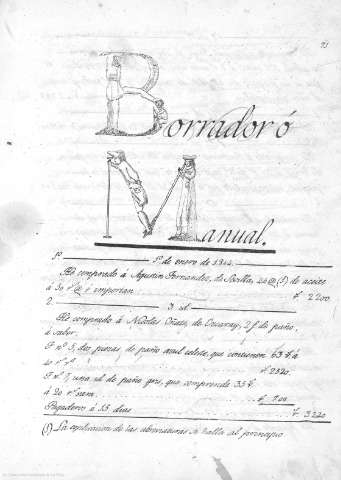 Borrador ó
Manual.
1º 1º de enero de 1844.
Hé comprado à Agustin Fernandez, de Sevilla, @ (1) de aceite
à 50 rˢ @ é importan rˢ 2200
2 3 id
Hé comprado à Nicolas de Ezcaray, 2 pˢ de paño,
à saber.
Pª nº 5, dos piezas de paño azul celeste, que contienen 63 vˢ à
40 rˢ vª rˢ 2520
Pª nº 7, una id de paño gris, que comprende 35 vˢ
à 20 rˢ idem. rˢ 700
Pagaderos à 55 dias rˢ 3220
(1) La esplicacion de las abreviaturas se halla al principio